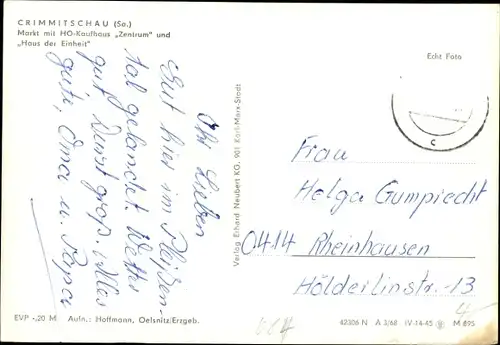 CRIMMITSCHAU (Sa.)
Markt mit HO-Kaufhaus „Zentrum" und
„Haus der Einheit"
Echt Foto
Ihr Lieben
Gut hier im Pleißen-
tal gelandet. Wetter
gut Durst groß. Alles
gute, Oma u. Papa
Verlag Erhard Neubert KG, 901 Karl-Marx-Stadt
c
Frau
Helga Gumprecht
0414 Rheinhausen
Hölderlinstr.-13
EVP -,20 M Aufn.: Hoffmann, Oelsnitz/Erzgeb.
42306 N A 3/68 IV-14-45 M 895